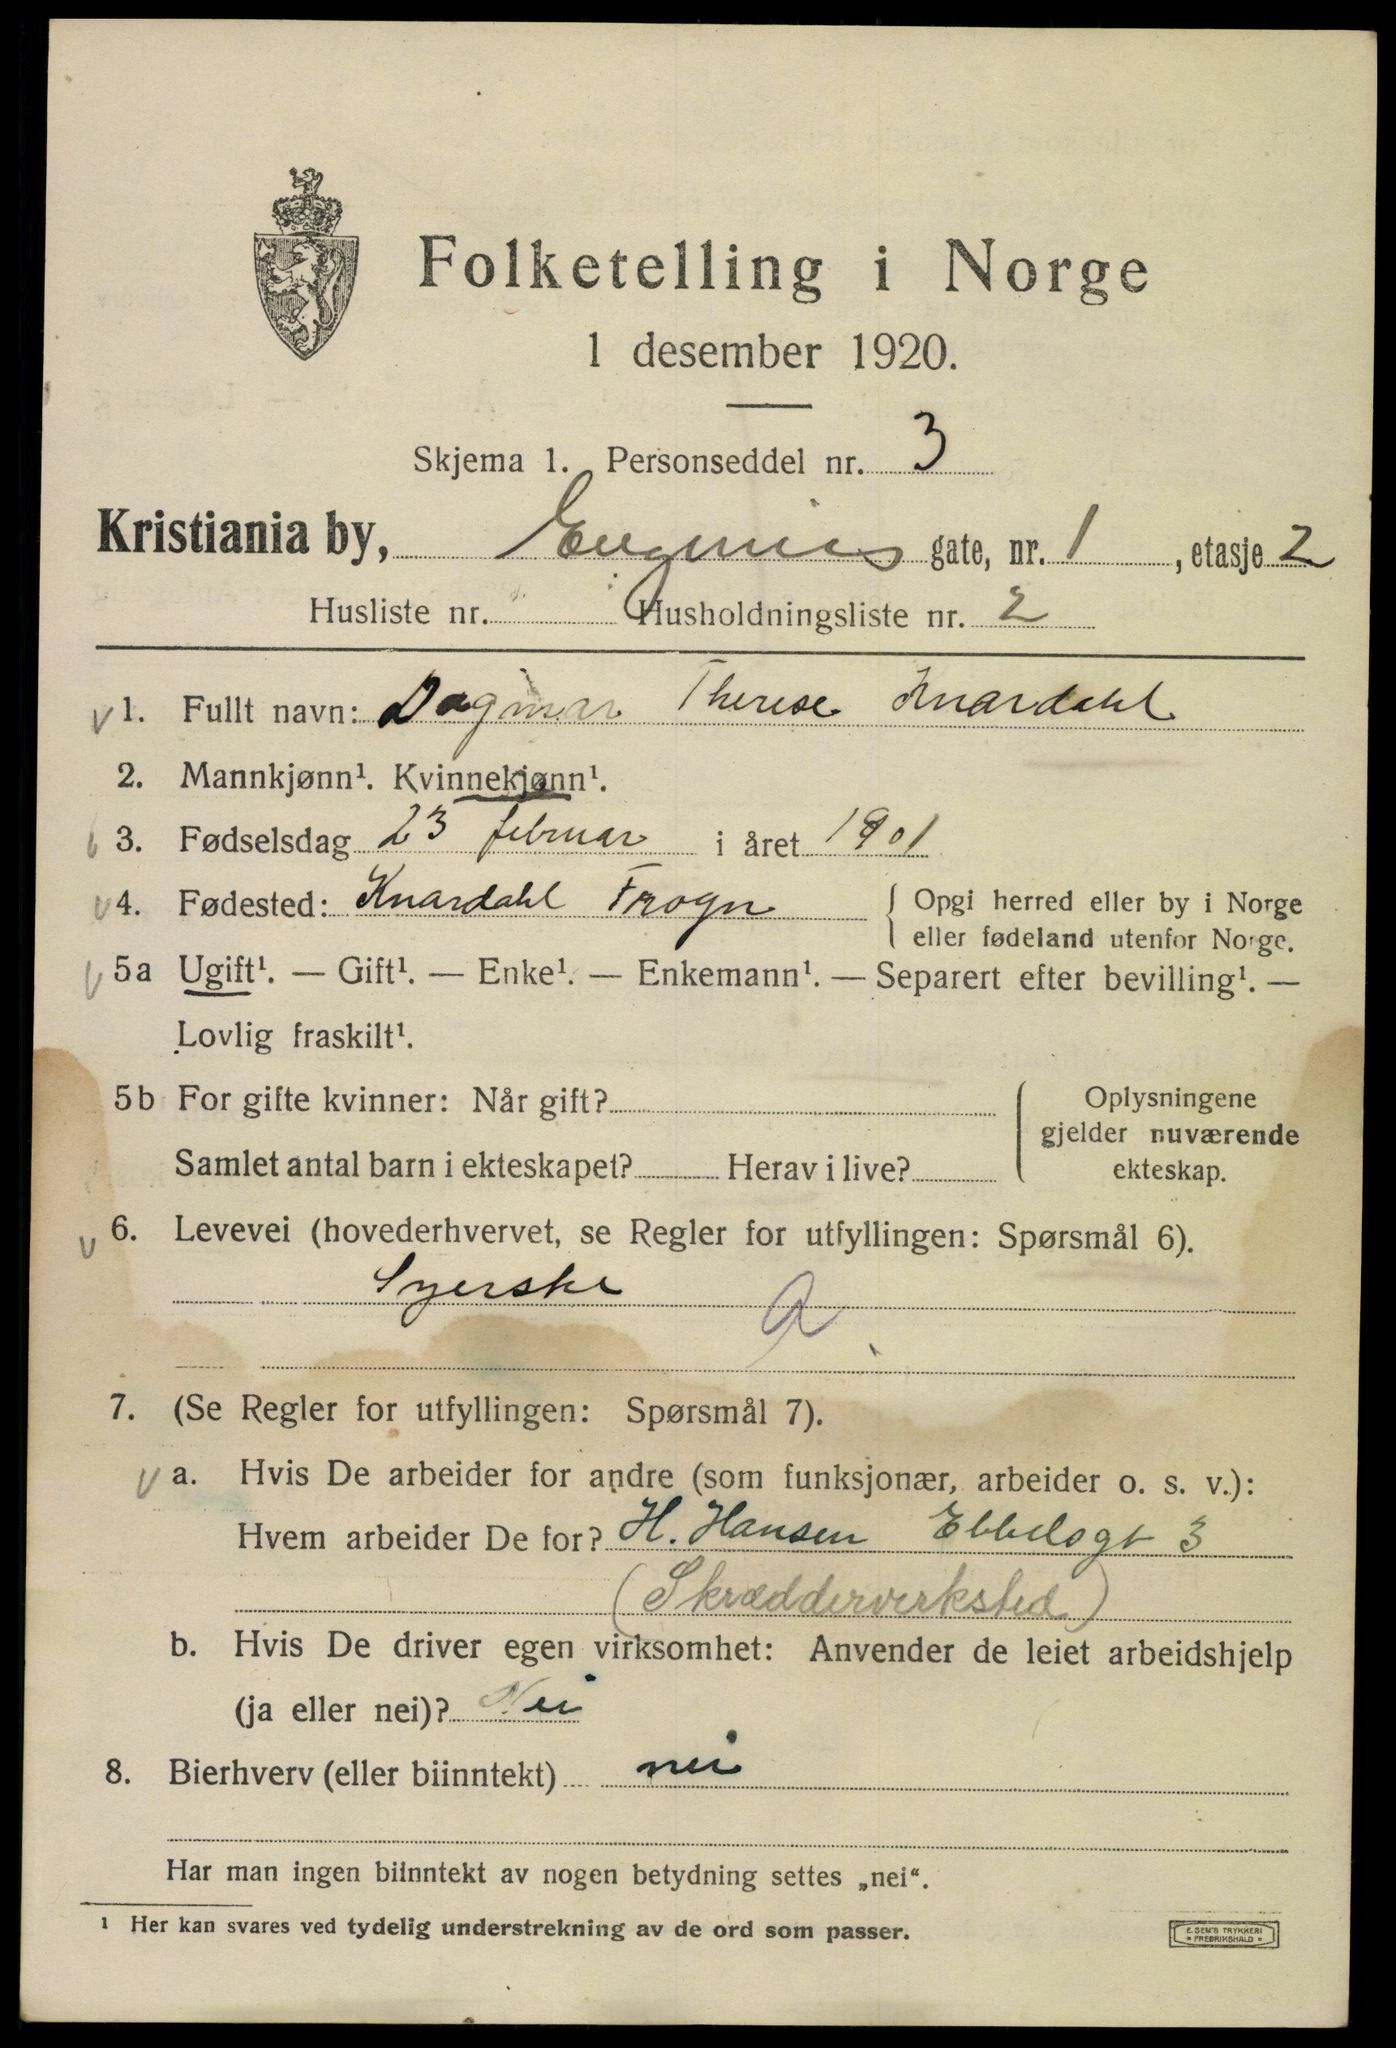 Folketelling i Norge
1 desember 1920.
Skjema 1. Personseddel nr. 3
Kristiania by, Eugenies gate, nr. 1, etasje 2
Husliste nr. Husholdningsliste nr. 2
1. Fullt navn: Dagmar Therese Knardahl
2. Mannkjønn¹. Kvinnekjønn¹.
3. Fødselsdag 23 februar i året 1901
4. Fødested: Knardahl Frogn { Opgi herred eller by i Norge
eller fødeland utenfor Norge.
5a Ugift¹. — Gift¹. — Enke¹. — Enkemann¹. — Separert efter bevilling¹. —
Lovlig fraskilt¹.
5b For gifte kvinner: Når gift? Oplysningene
gjelder nuværende
Samlet antal barn i ekteskapet? Herav i live? ekteskap.
6. Levevei (hovederhvervet, se Regler for utfyllingen: Spørsmål 6).
Syerske
a
7. (Se Regler for utfyllingen: Spørsmål 7).
a. Hvis De arbeider for andre (som funksjonær, arbeider o. s. v.):
Hvem arbeider De for? H. Hansen Ebbelsgt 3
(Skrædderverksted)
b. Hvis De driver egen virksomhet: Anvender de leiet arbeidshjelp
(ja eller nei)? Nei
8. Bierhverv (eller biinntekt) nei
Har man ingen biinntekt av nogen betydning settes „nei“.
¹ Her kan svares ved tydelig understrekning av de ord som passer.
E. SEM'S TRYKKERI
• FREDRIKSHALD •